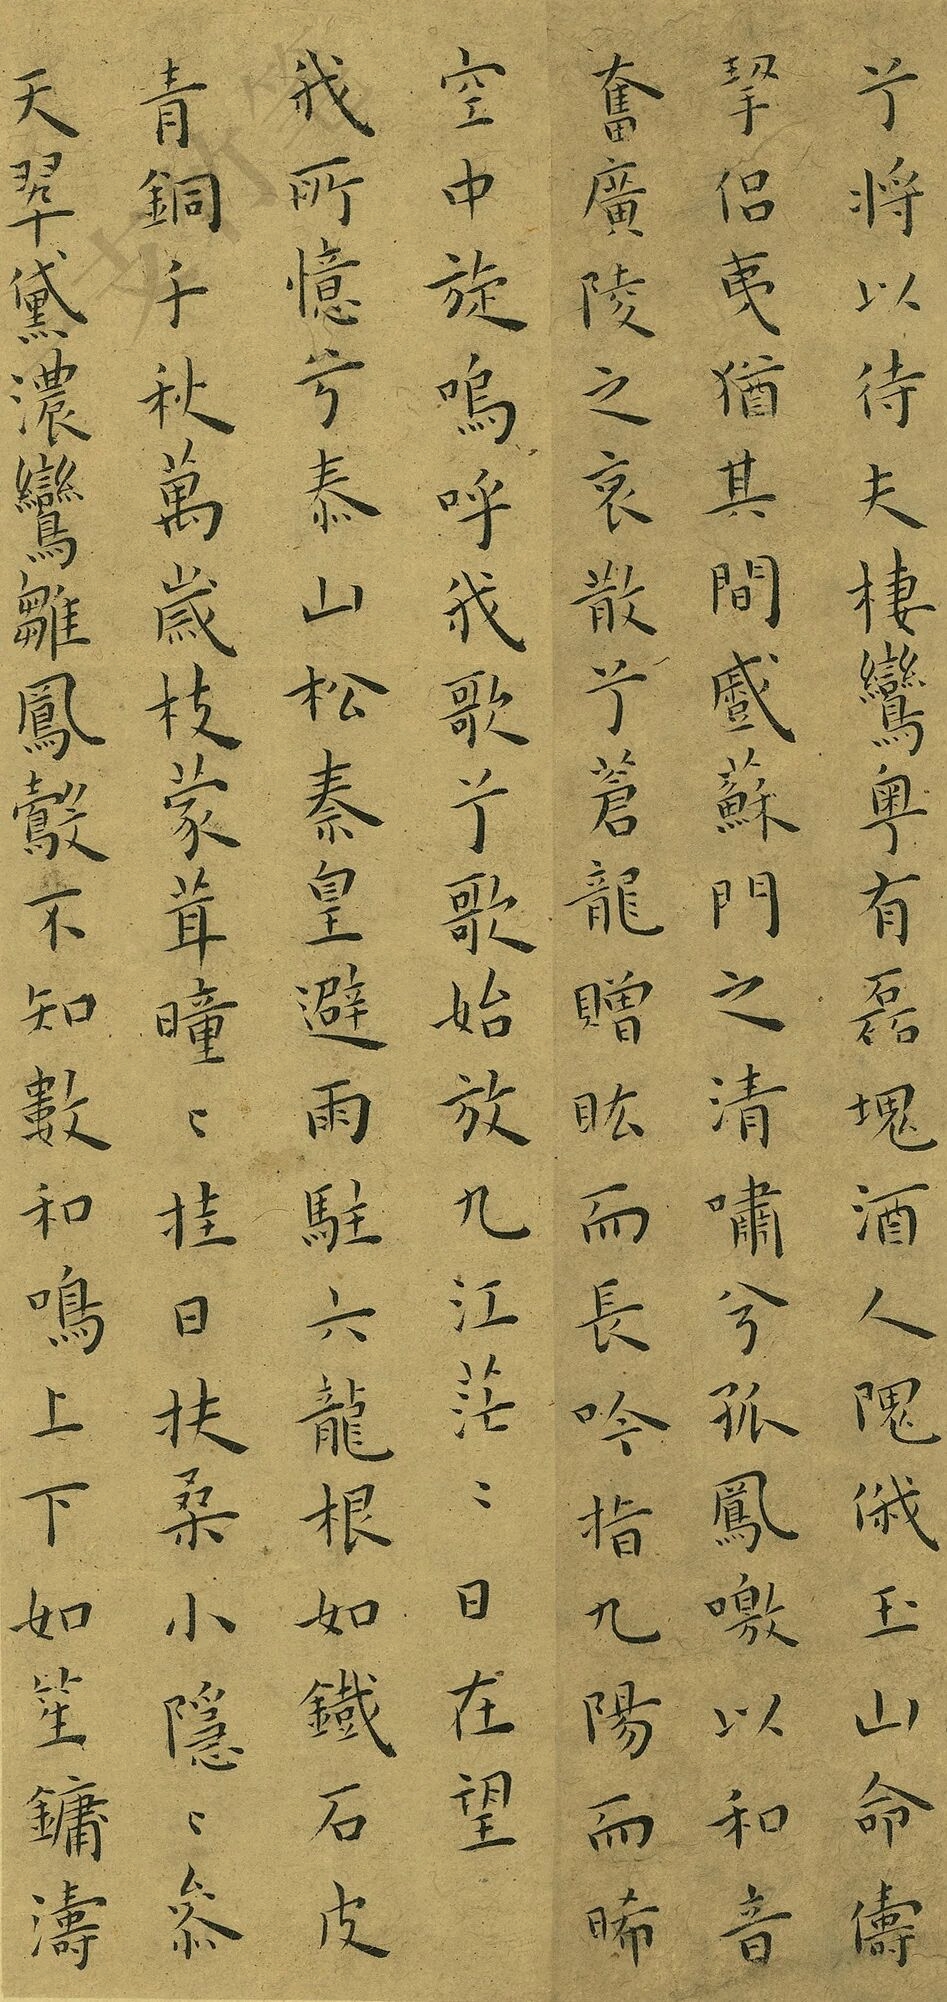 兮將以待夫棲鸞粤有磊塊酒人隗俄玉山命儔
挈侣夷猶其間蹙蘇門之清嘯兮孤鳳噭以和音
奮廣陵之哀散兮蒼龍贈眩而長吟指九陽而晞
空中旋嗚呼我歌兮歌始放九江茫〻日在望
我所憶兮泰山松秦皇避雨駐六龍根如鐵石皮
青銅千秋萬歲枝蒙茸曈〻挂日扶桑小隱〻參
天翠黛濃鸞雛鳳鷇不知數和鳴上下如笙鏞濤